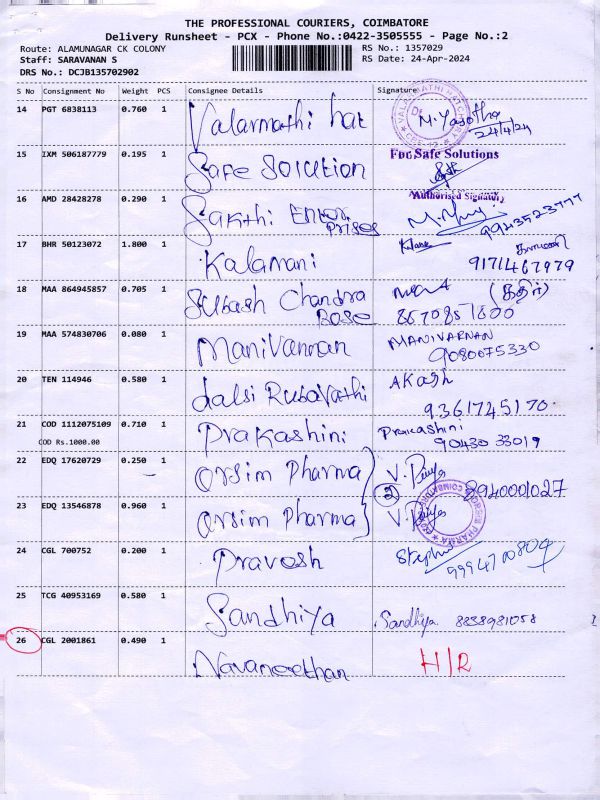 THE PROFESSIONAL COURIERS, COIMBATORE
Delivery Runsheet - PCX - Phone No.:0422-3505555 - Page No.:2
Route: ALAMUNAGAR CK COLONY RS No.: 1357029
Staff: SARAVANAN S RS Date: 24-Apr-2024
DRS No.: DCJB135702902
S No Consignment No Weight PCS Consignee Details Signature
14 PGT 6838113 0.760 1 Valarmathi hat M. Yasotha
24/4/24
15 IXM 506187779 0.195 1 Safe Solution For Safe Solutions
Authorised Signatory
16 AMD 28428278 0.290 1 Sakthi Enter
Prises 9943523777
17 BHR 50123072 1.800 1 Kalamani
9171467979
18 MAA 864945857 0.705 1 Subash Chandra (கதிர்)
Bose 8870851800
19 MAA 574830706 0.080 1 Manivannan MANIVARNAN
9080075330
20 TEN 114946 0.580 1 dalsi Rubavathi AKash
9361745170
21 COD 1112075109 0.710 1 Prakashini Prakashini
COD Rs.1000.00 90430 33019
22 EDQ 17620729 0.250 1 Orsim Pharma V. Priya
2 8940001027
23 EDQ 13546878 0.960 1 Orsim Pharma V. Priya
24 CGL 700752 0.200 1 Pravesh Stephen
9994700804
25 TCG 40953169 0.580 1 Sandhiya Sandhiya 8838981058
26 CGL 2001861 0.490 1 Navaneethan H/R